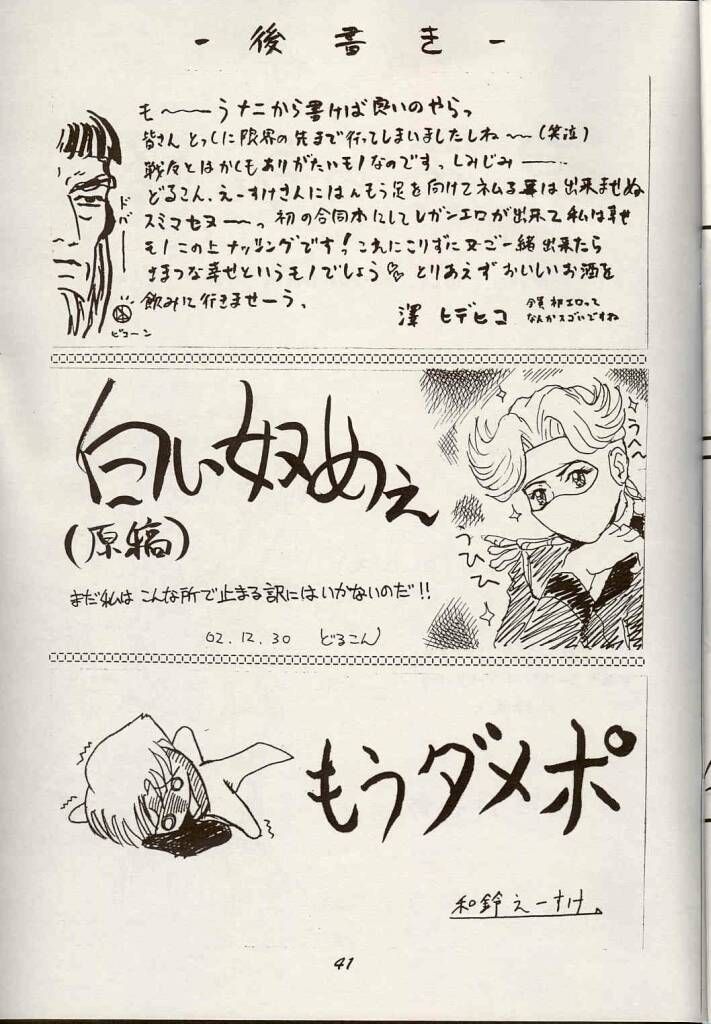 - 後書き -
モーーーうナニから書けば良いのやらっ
皆さんとっくに限界の先まで行ってしまいましたしね〜(笑泣)
戦々とはかくもありがたいモノなのです。しみじみーー
どるこん、えーすけさんにはもう足を向けてネムる事は出来ませぬ
スミマセヌーーっ 初の合同本にしてレガンエロが出来て私は幸せ
モノこの上ナッシングです!これにこりずに又ご一緒出来たら
さまつな幸せというモノでしょう とりあえずおいしいお酒を
飲みに行きませーう。
澤 ヒデヒコ
全頁初エロって
なんかスゴいですね
ドバーー
ピコーン
白い奴めぇ
(原稿)
まだ私はこんな所で止まる訳にはいかないのだ!!
02.12.30 どるこん
うへへ
うひひ
もうダメポ
和鈴えーすけ
41